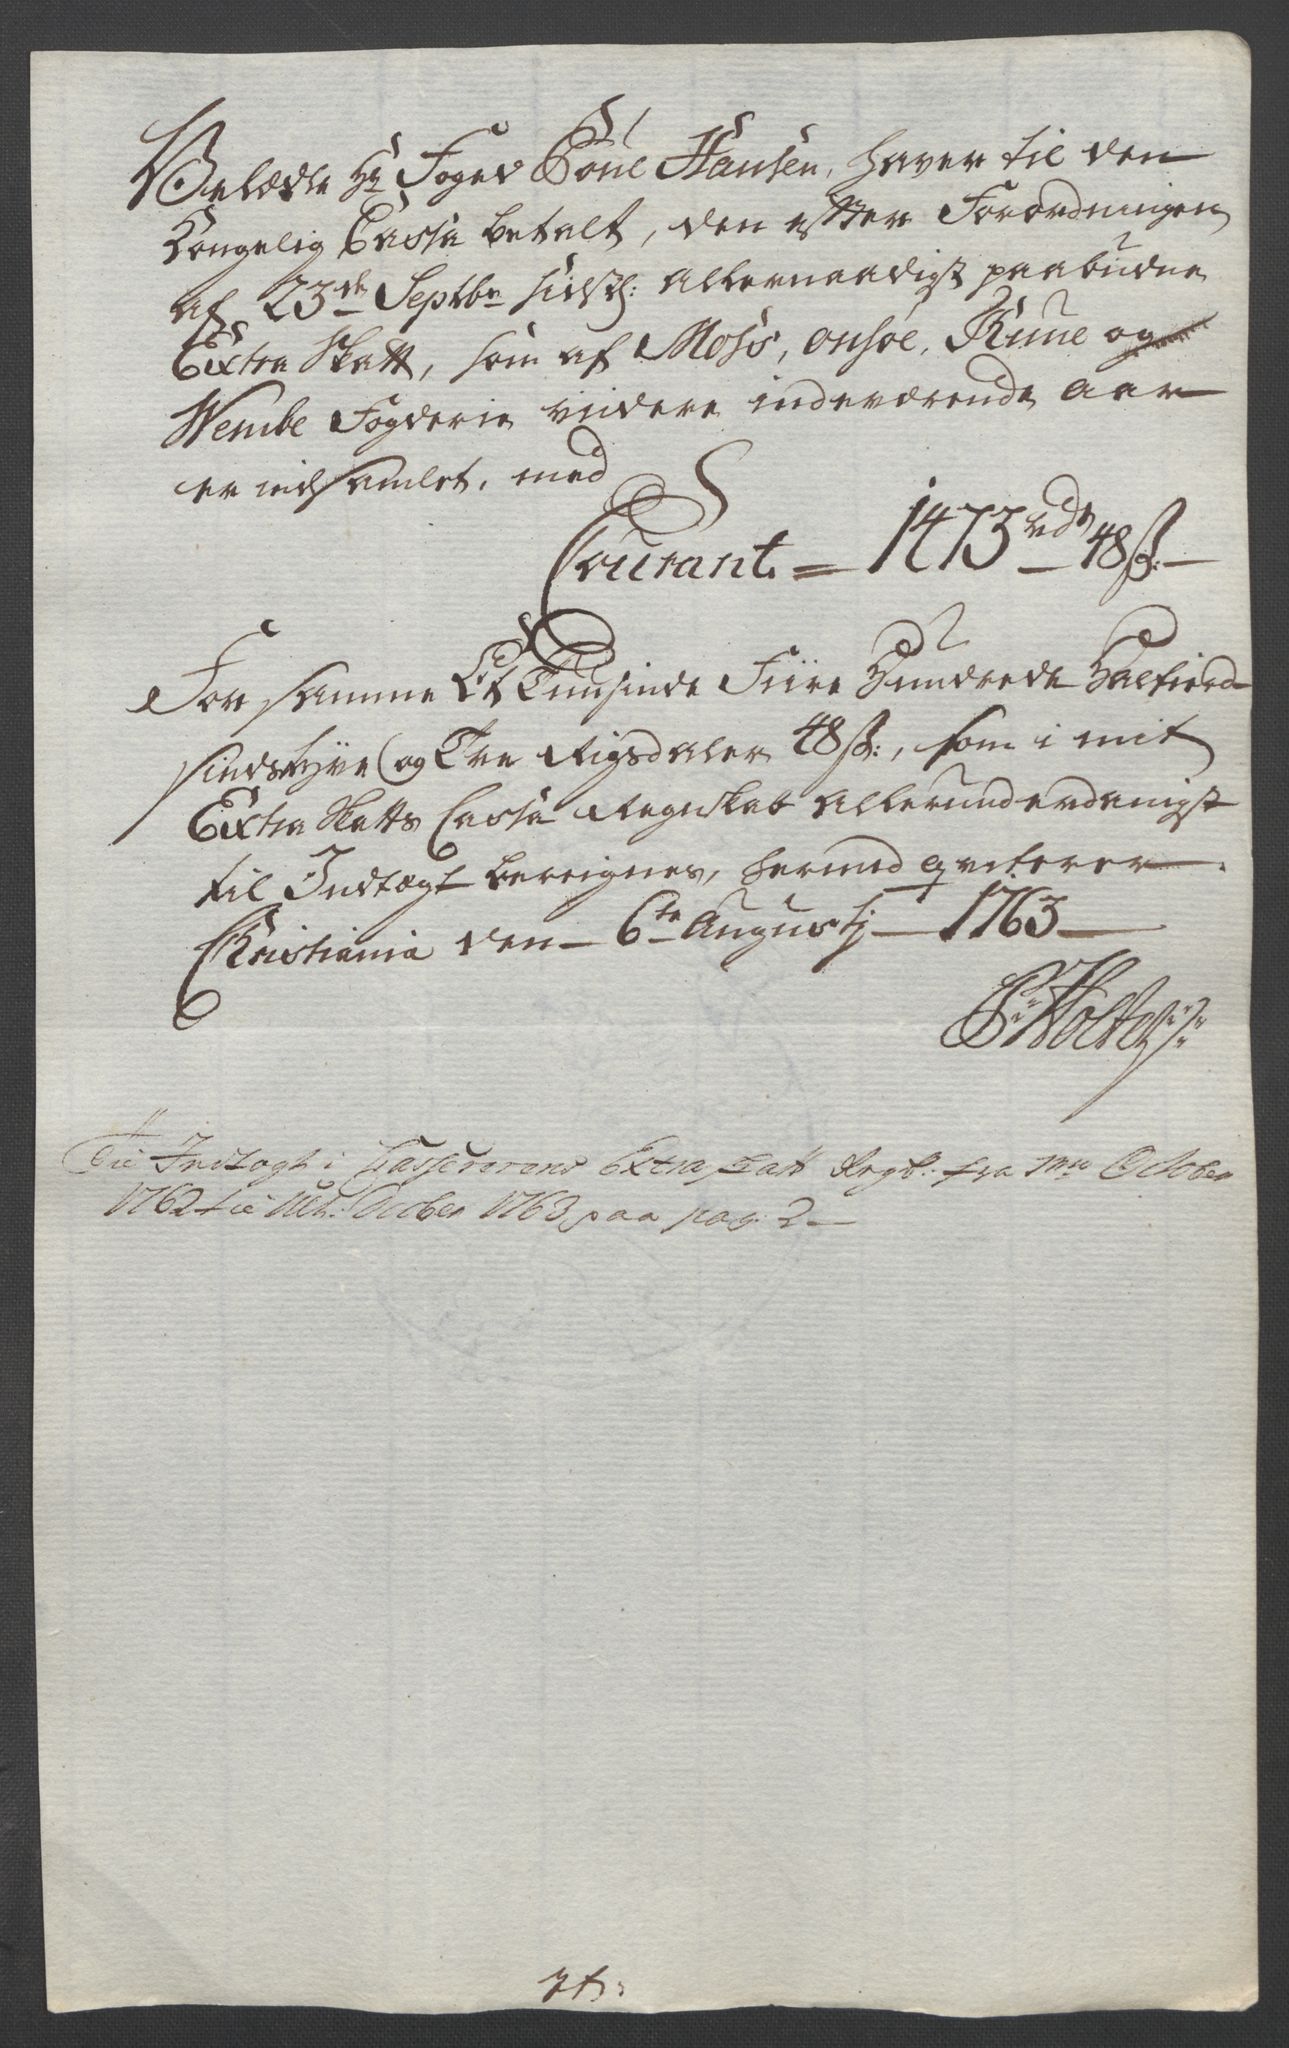 Velædle Hr Foged Povel Hansen, haver til den
Kongelig Cassa betalt, den efter Forordningen
af 23de Septbr sidstl: allernaadigst paabudne
Extra Skatt, som af Moss, Onsøe, Thune og
Wembe Fogderie videre indeværende Aar
er indsamlet, med
Courant = 1473 rdr 48 ß:
For samme Et Tusinde Fiire Hundrede Halfierd-
sindstyve og Tre Rigsdaler 48 ß:, som i mit
Extra Skatts Cassa Regnskab allerunderdanigst
til Indtægt bereignes, hermed qviterer
Christiania den 6te Augustj 1763
P: Holte
Til Indtægt i Cassererens Extra Skatt Regsk: fra 1mo October
1762 til Ult: October 1763 paa pag: 2